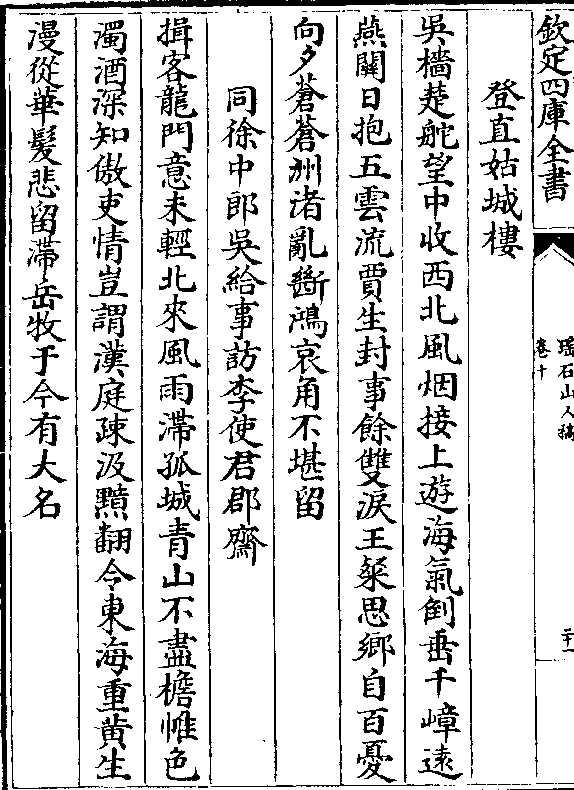 欽定四庫全書
瑶石山人稿
卷十
二十一
登直姑城樓
吳檣楚舵望中收西北風烟接上遊海氣倒垂千嶂逺
燕關日抱五雲流賈生封事餘雙淚王粲思鄉自百憂
向夕蒼蒼洲渚亂斷鴻哀角不堪留
同徐中郎吳給事訪李使君郡齋
揖客龍門意未輕北來風雨滯孤城青山不盡襜帷色
濁酒深知傲吏情豈謂漢庭疎汲黯翻令東海重黄生
漫從華髪悲留滯岳牧于今有大名